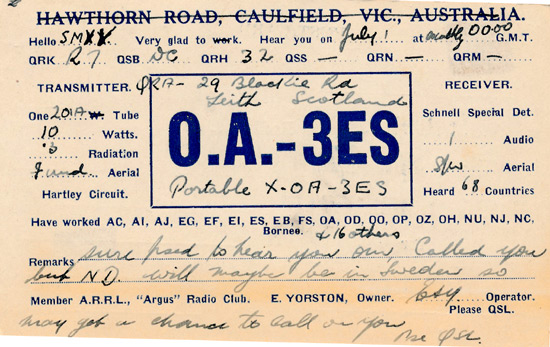 HAWTHORN ROAD, CAULFIELD, VIC., AUSTRALIA.
Hello SM Very glad to work. Hear you on July 1 at 0000 G.M.T.
QRK R7 QSB DC QRH 32 QSS — QRN — QRM —
TRANSMITTER. QRA- 29 Blackie Rd RECEIVER.
Leith Scotland
One 201A Tube Schnell Special Det.
10 Watts. 1 Audio
.3 Radiation S/W Aerial
Fund Aerial Heard 68 Countries
Hartley Circuit.
O.A.-3ES
Portable X-OA-3ES
Have worked AC, AI, AJ, EG, EF, EI, ES, EB, FS, OA, OD, OO, OP, OZ, OH, NU, NJ, NC,
Borneo. & 16 others
Remarks sure psed to hear you om. Called you
but ND will maybe be in Sweden so
Member A.R.R.L., "Argus" Radio Club. E. YORSTON, Owner. Operator.
Please QSL.
may get a chance to call on you
Pse QSL.